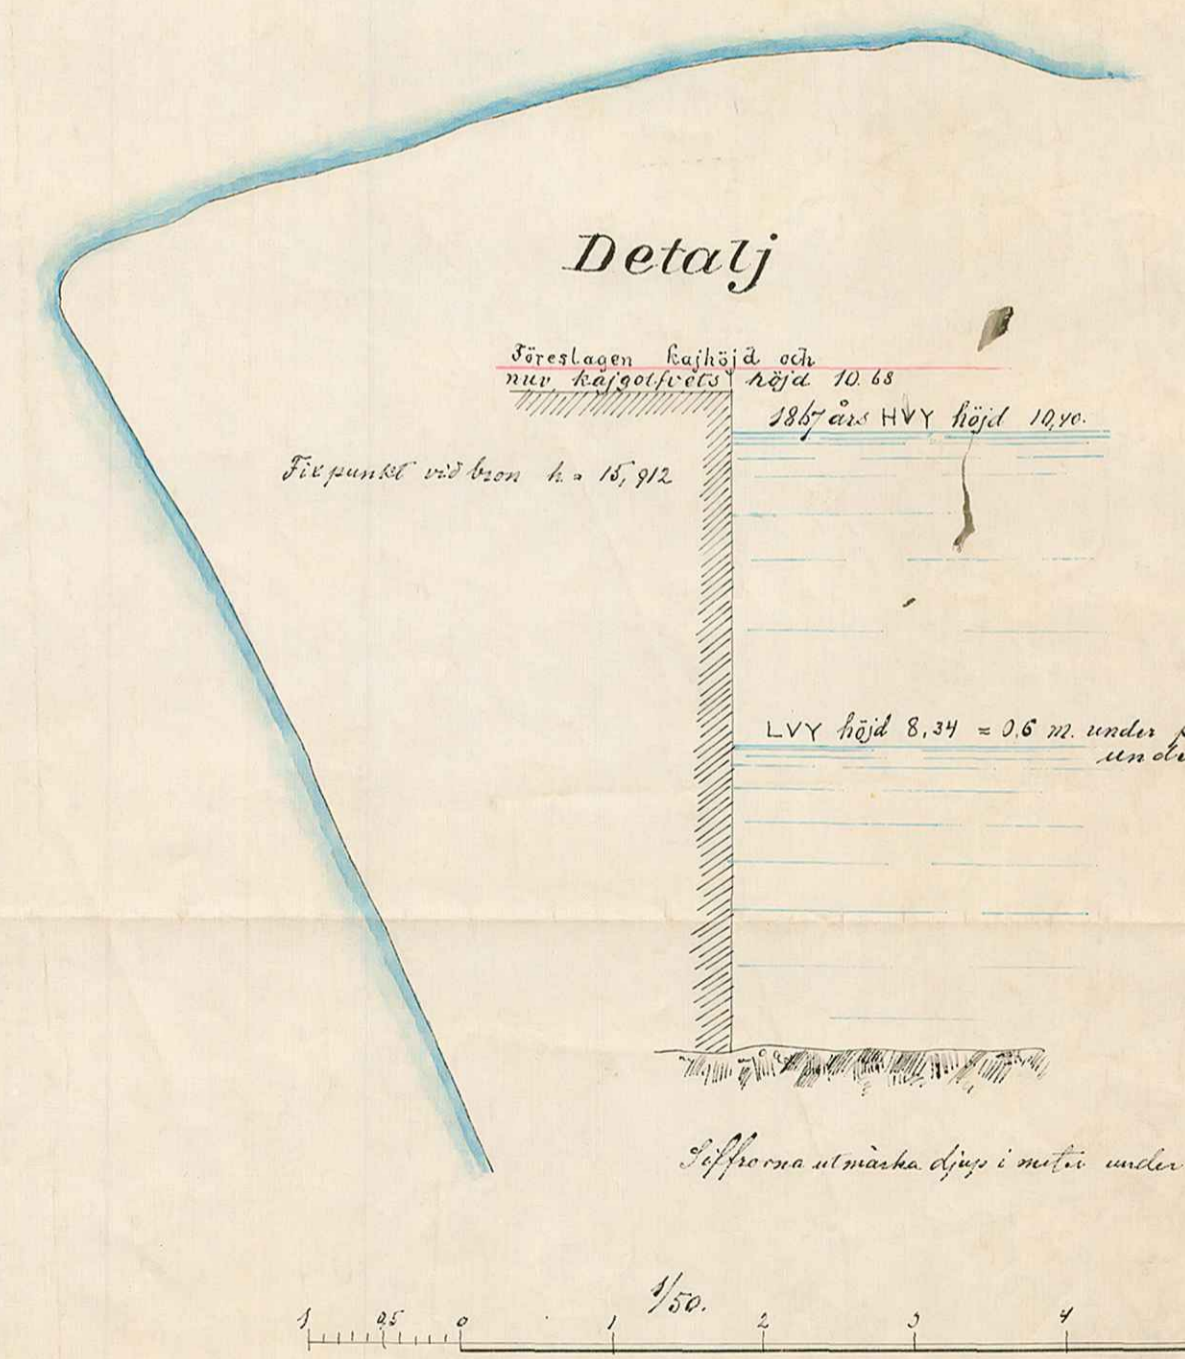 Detalj
Föreslagen kajhöjd och
nuv. kajgolfvets höjd 10.68
1867 års HVY höjd 10,40.
Fixpunkt vid bron h = 15,912
LVY höjd 8,34 = 0,6 m. under
unde
Siffrorna utmärka djup i meter under
1/50.
1 0,5 0 1 2 3 4